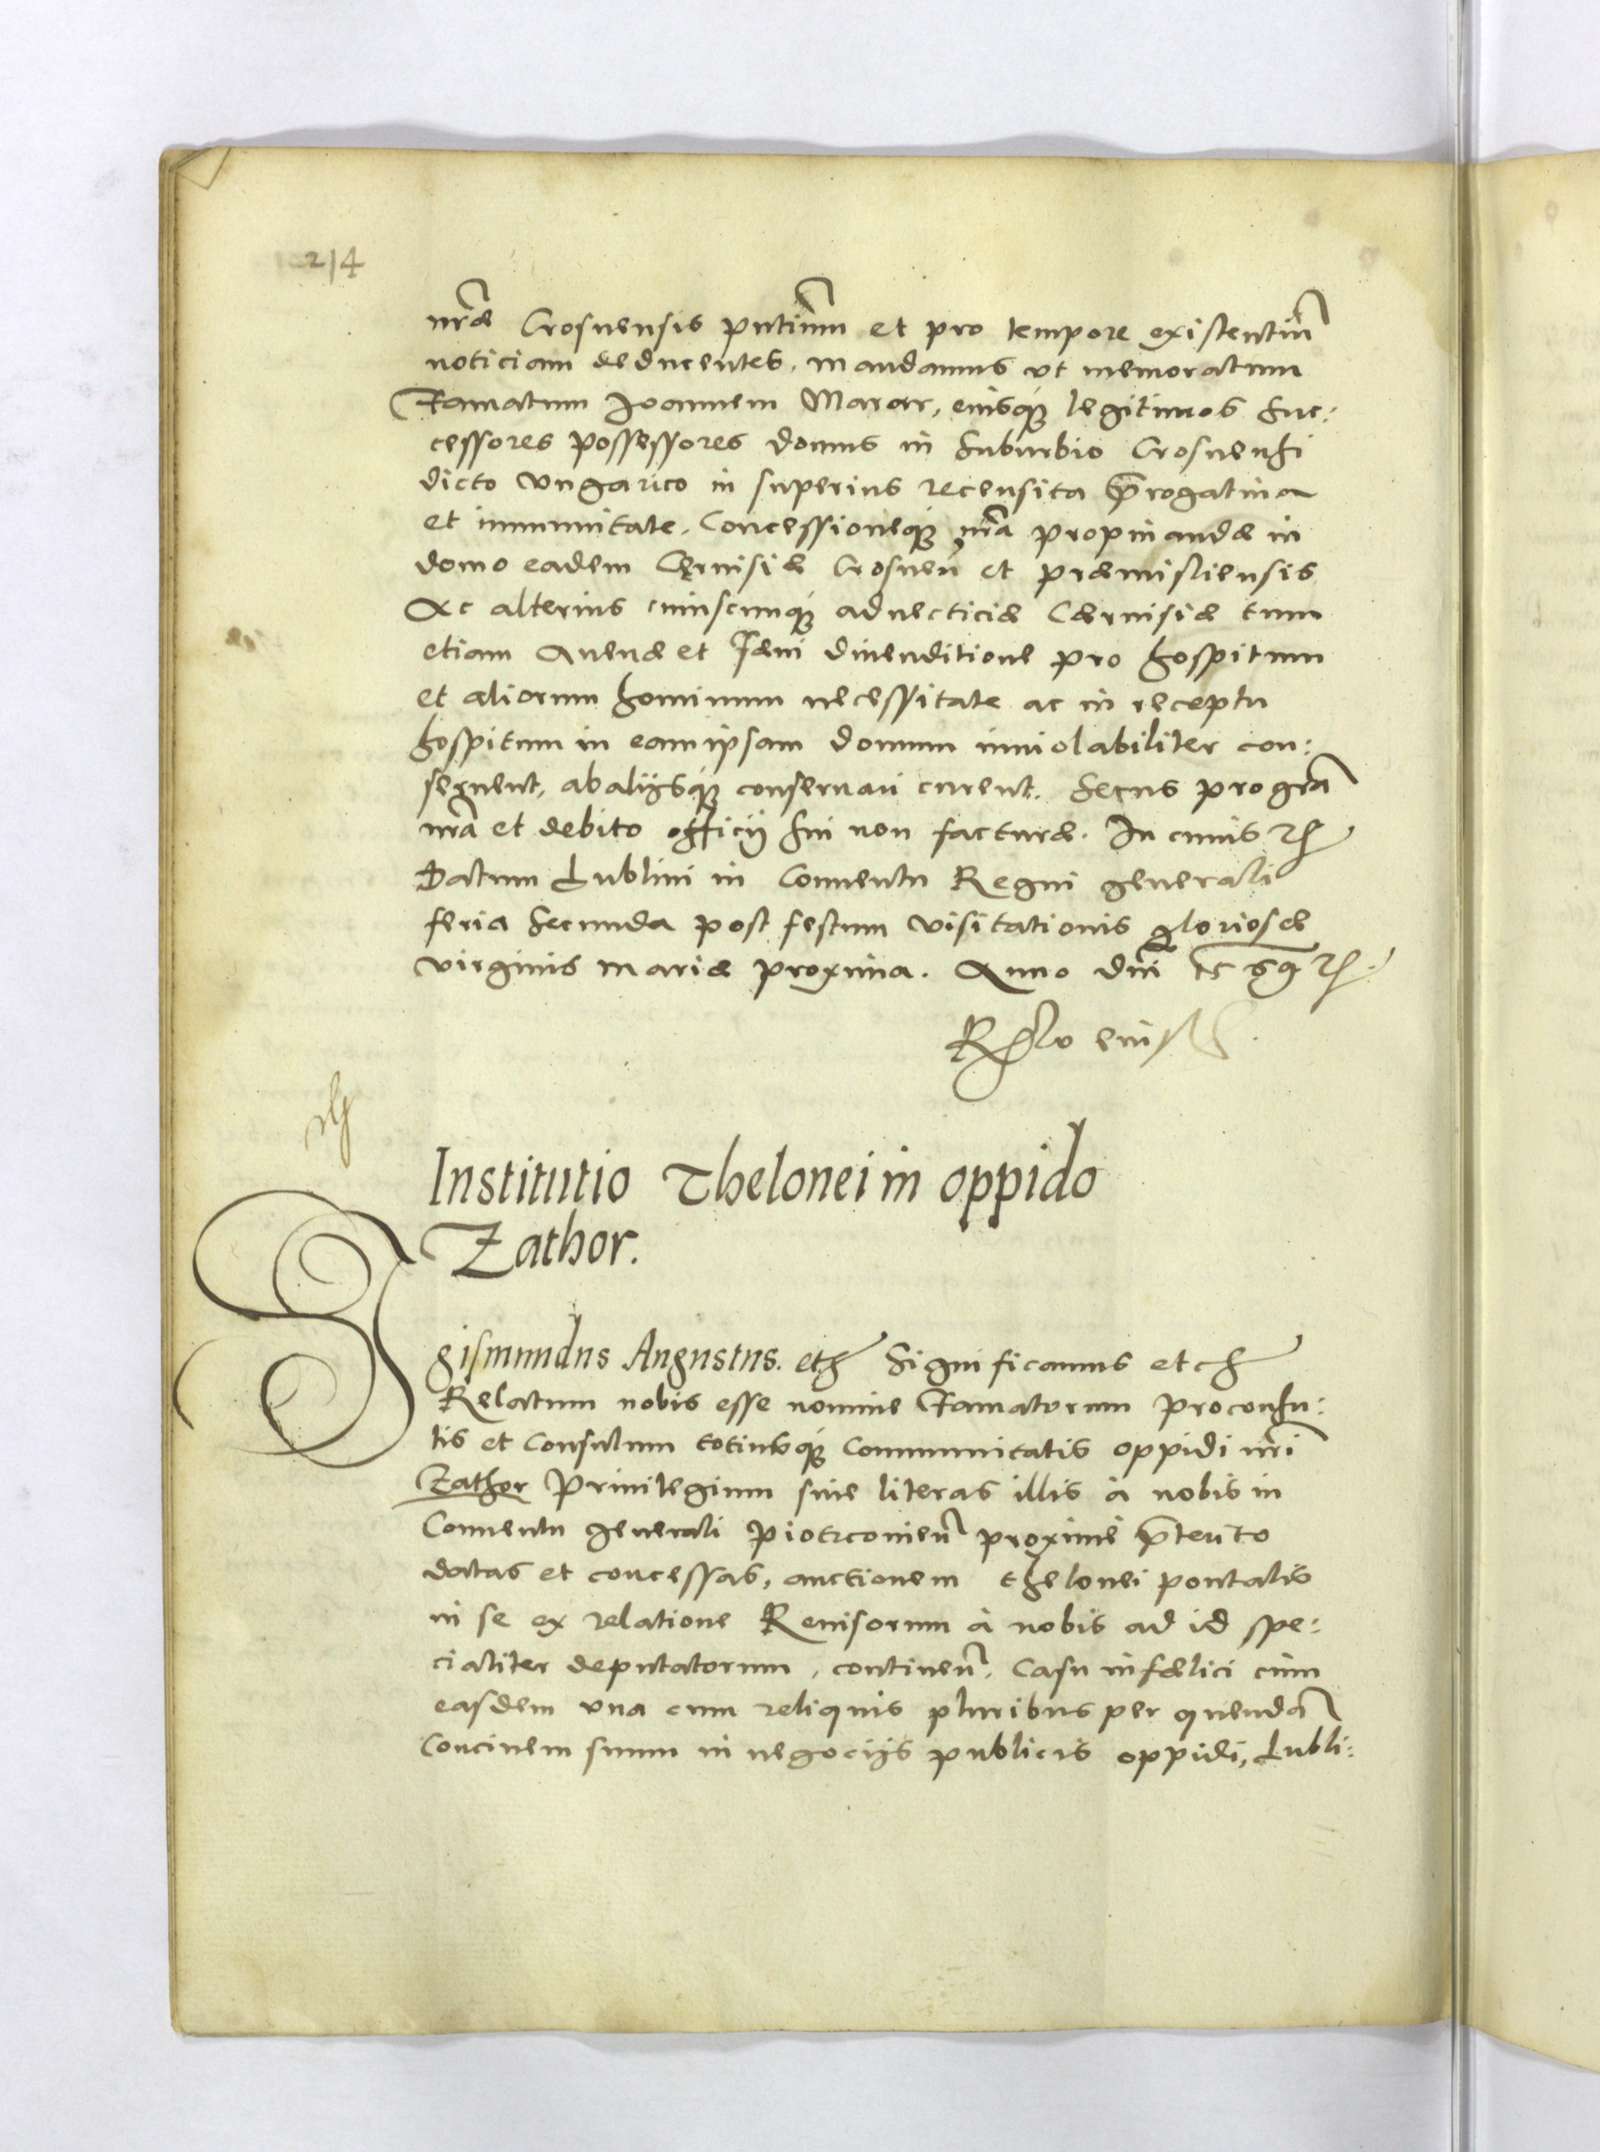 214
nrae Crosnensis pntium et pro tempore existentium
noticiam deducentes. mandamus vt memoratum
Famatum Joannem Marar, eiusque legitimos suc:
cessores possessores domus in suburbio Crosnensi
dicto vngarico in superius recensita prerogatiua
et immunitate. Concessioneque nra propinandae in
domo eadem Ceruisiae Crosnen et praemisliensis
Ac alterius cuiuscunque aduecticiae Caeruisiae tum
etiam Auenae et Faeni diuenditione pro hospitum
et aliorum hominum necessitate ac in receptu
hospitum in eam ipsam domum inuiolabiliter con:
seruent, ab aliisque conseruari curent. Secus pro gra
nra et debito officij sui non facturae. In cuius rei
Datum Lublini in Conuentu Regni generali
feria secunda post festum visitationis gloriosae
virginis mariae proxima. Anno dni 1569
Rlo eius
Institutio Thelonei in oppido
Zathor.
Sigismundus Augustus. etc Significamus etc
Relatum nobis esse nomine Famatorum proconsu:
lis et Consulum totiusque Communitatis oppidi nri
Zathor Priuilegium siue literas illis à nobis in
Conuentu generali piotrconien proximè prtento
datas et concessas, auctionem thelonei pontalis
in se ex relatione Reuisorum à nobis ad id spe:
cialiter deputatorum, continen. Casu infaelici cum
easdem vna cum reliquis pluribus per quendam
Conciuem suum in negocijs publicis oppidi, Lubli: